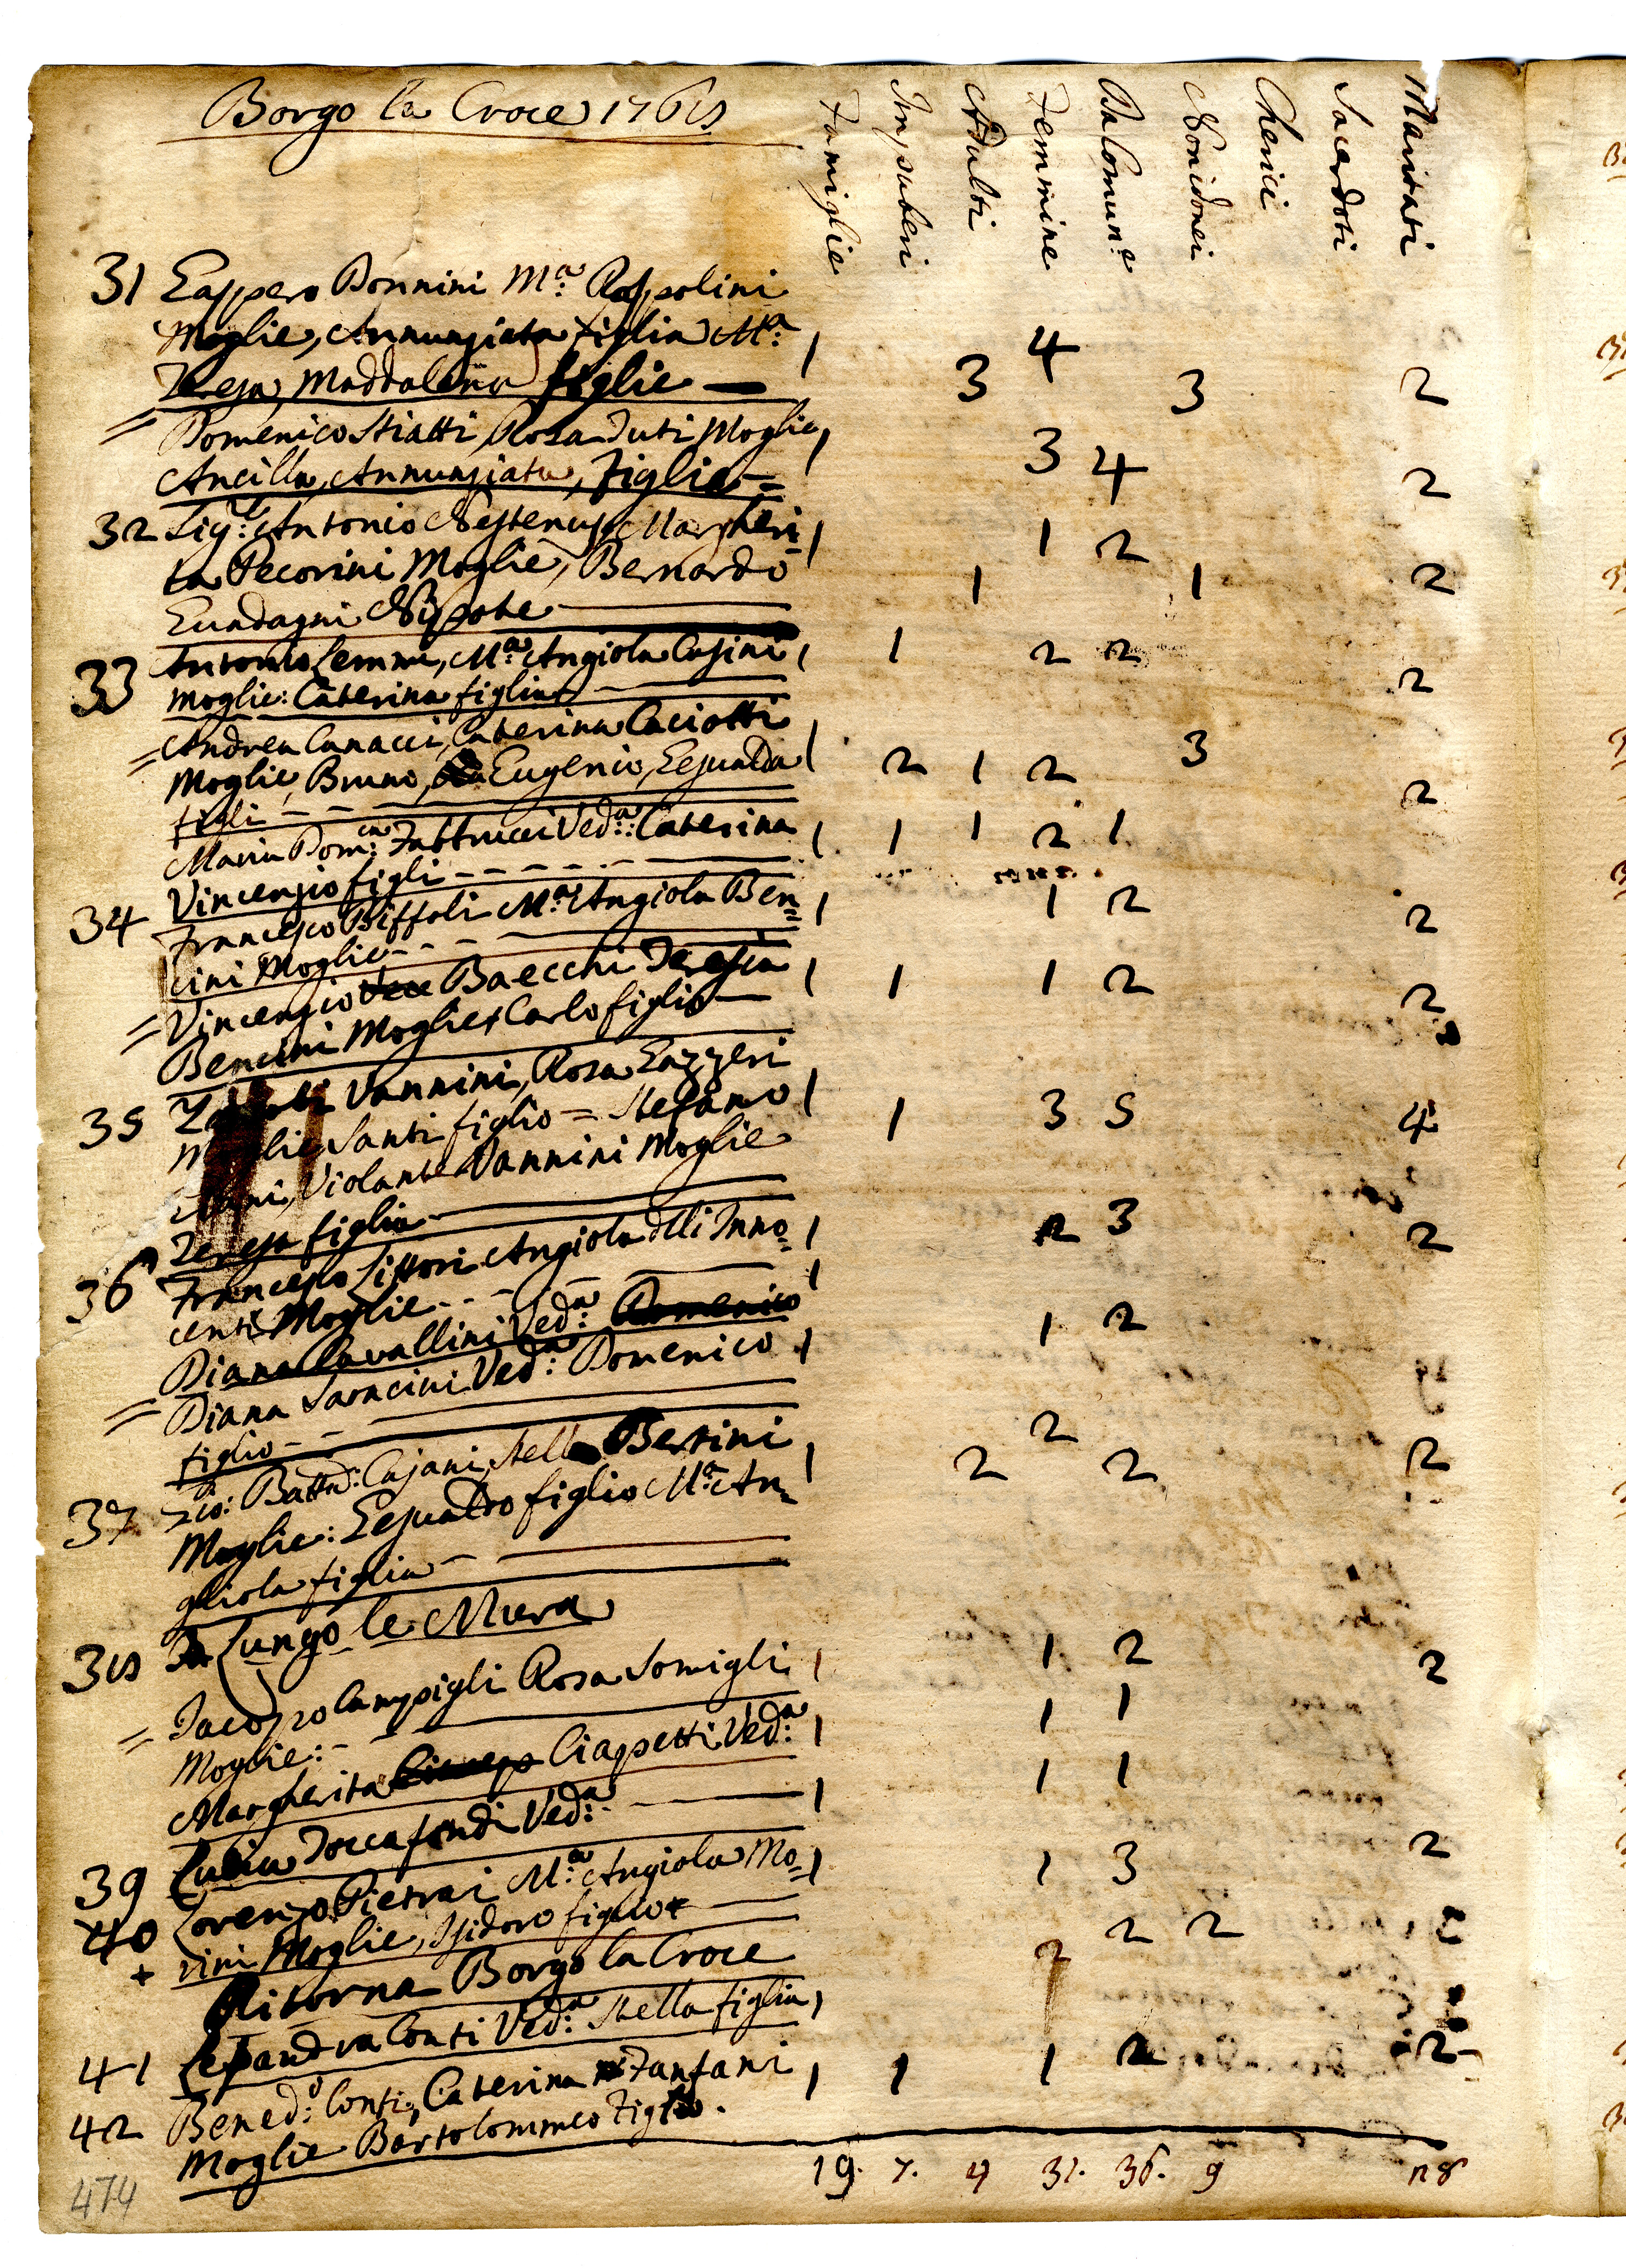 Borgo la Croce 1768
Famiglie Impuberi Adulti Femmine Da Comun.e Non idonei Cherici Sacerdoti Maritati
31 Gaspero Bonnini M.a Rospolini
Moglie, Annunziata figlia M.a 1 4
Teresa, Maddalena figlie 3 3 2
= Domenico Stiatti, Rosa Tuti Moglie 1 3 4 2
Ancilla, Annunziata, Figlie =
32 Sig.r Antonio Nestenus, Margheri 1 1 2
ta Pecorini Moglie, Bernardo 1 1 2
Guadagni Nipote
33 Antonio Lemmi, M.a Angiola Casini 1 1 2 2
Moglie: Caterina figlia 2
= Andrea Canacci, Caterina Caciotti 3
Moglie, Bruno, Eugenio, Gesualda 1 2 1 2 2
figli
Maria Dom.ca Fattucci Ved.a: Caterina 1 1 1 2 1
Vincenzio figli
34 Francesco Biffoli M.a Angiola Ben= 1 1 2 2
cini Moglie
= Vincenzio Baecchi Teresia 1 1 1 2 2
Bencini Moglie, Carlo figlio
35 Vannini, Rosa Gazzeri
Moglie Santi figlio = Stefano 1 1 3 5 4
Violante Vannini Moglie
Teresa figlia
36 Francesco Littori Angiola dlli Inno= 1 2 3 2
centi Moglie 1
Diana Cavallini Ved.a Domenico 1 2
= Diana Saracini Ved.a: Domenico 1
figlio
37 Gio: Batta: Cajani, Stella Bertini 1 2 2 2 2
Moglie: Gesualdo figlio M.a An=
giola figlia
38 Lungo le Mura
= Iacopo Campigli Rosa Somigli 1 1 2 2
Moglie:
Margherita Ciapetti Ved.a 1 1 1
39 Lucia Toccafondi Ved.a 1 1 1
40 Lorenzo Pietrai M.a Angiola Mo= 1 1 3 2
+ rini Moglie, Isidoro figlio
Ritorna Borgo la Croce
41 Lesandra Conti Ved.a Stella figlia 1 2 2 2
42 Bened.o Conti, Caterina Fanfani 1 1 1 2 2
Moglie Bartolommeo Figlio.
19. 7. 9 31. 36. 9 28
474